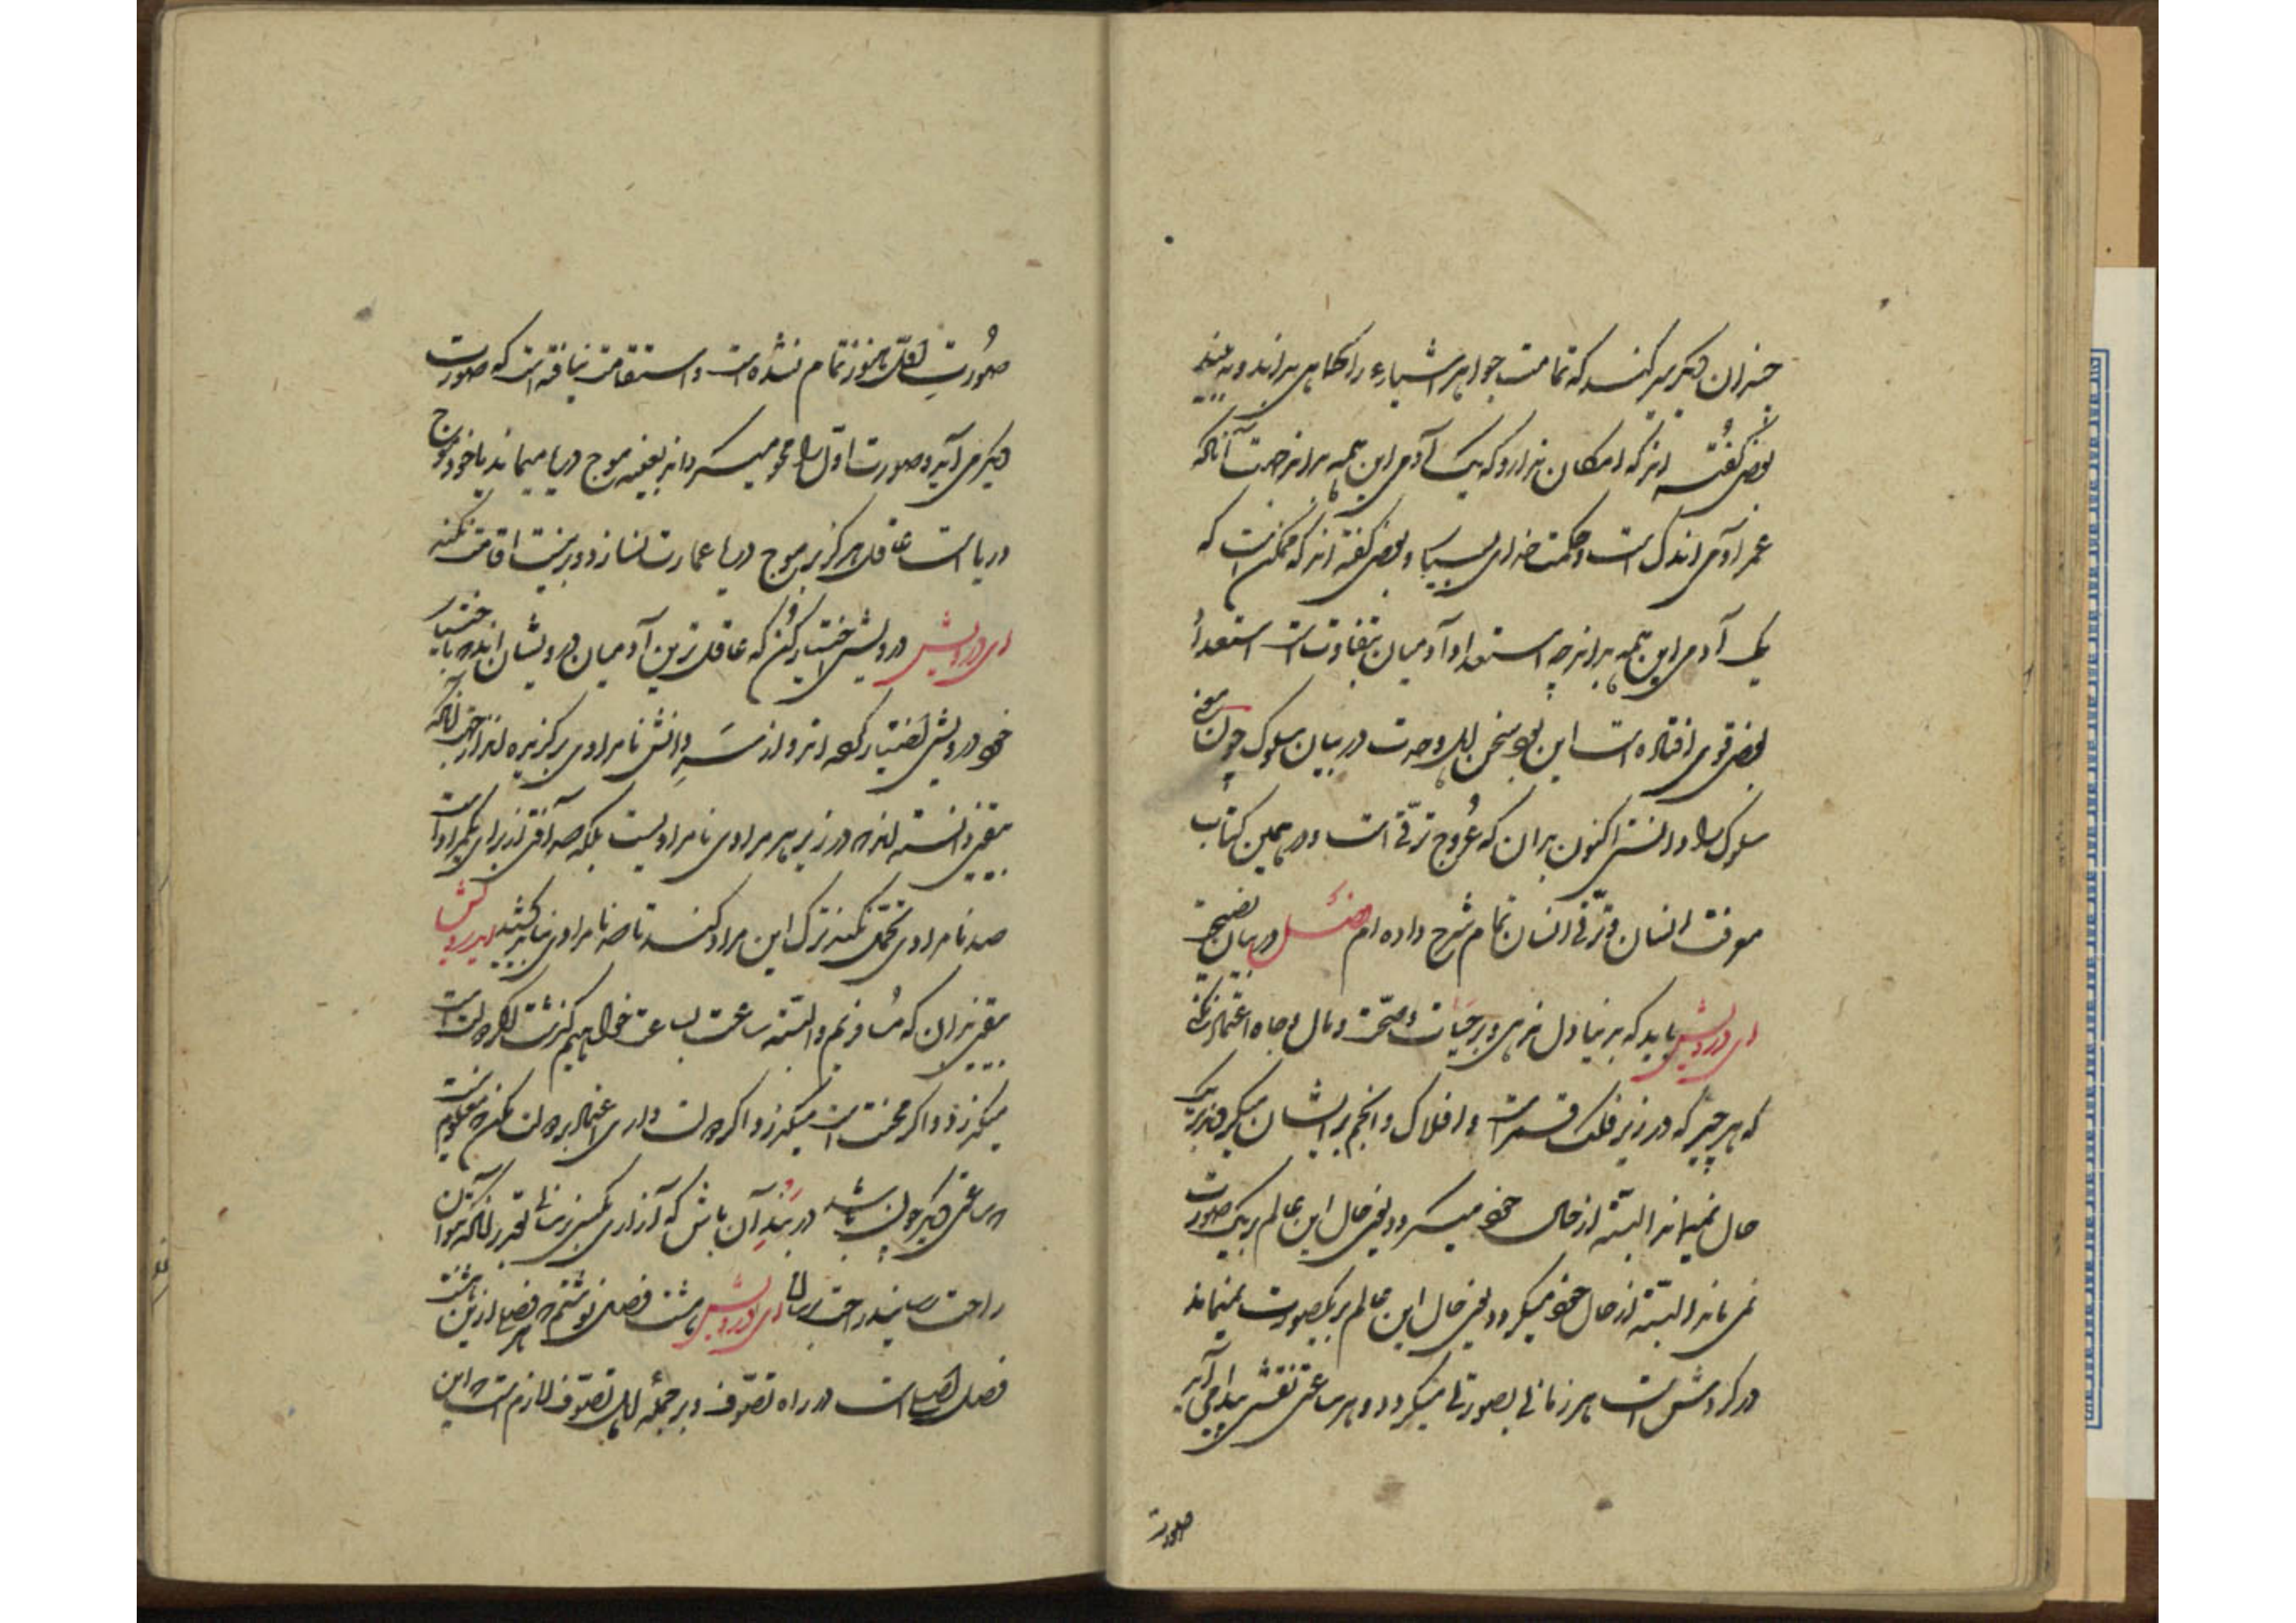 چندان دیگر سیر کند که تمامت جواهر اشیاء را کماهی بداند و به بیند
بعضی گفته اند که امکان ندارد که یک آدمی این همه بداند جهت آنکه
عمر آدمی اندک است و حکمت خدای بسیار و بعضی گفته اند که ممکن است که
یک آدمی این همه بداند چه استعداد آدمیان متفاوت است استعداد
بعضی قوی افتاده است این بود سخن اهل وحدت در بیان سلوک چون معنی
سلوک را دانستی اکنون بدان که عروج ترقی است و در همین کتاب
معرفت انسان و ترقی انسان تمام شرح داده ام فصل در بیان نصیحت
ای درویش باید که بر دنیا دل ننهی و بر حیات و صحت و مال و جاه اعتماد نکنی
که هر چیز که در زیر فلک قمر است و افلاک و انجم بر ایشان میگردند بر یک
حال نمیماند البته از حال خود میگردد یعنی حال این عالم بر یک صورت
نمی ماند البته از حال خود میگردد یعنی حال این عالم بر یکصورت نمیماند
در گردش است هر زمانی بصورتی میگردد و هر ساعتی نقشی پیدا می آید
صورت
صورت اول هنوز تمام نشده است و استقامت نیافته است که صورت
دیگر می آید و صورت اول را محو میگرداند بعینه موج دریا میماند یا خود موج
دریا است عاقل هرگز بر موج دریا عمارت نسازد و نیت اقامت نکند
ای درویش درویشی اختیار کن که عاقل ترین آدمیان درویشان اند که باختیار
خود درویشی اختیار کرده اند و از سر دانش نامرادی برگزیده اند از جهت آنکه
بیقین دانسته اند که در زیر هر مرادی نامرادیست بلکه صد آفتی از برای یکمراد است
صد نامرادی تحمل نکند ترک این مراد کند تا صد نامرادی نباید کشید ای درویش
بیقین بدان که مسافریم و البته ساعت بساعت خواهیم گذشت اگر دولت است
میگذرد و اگر محنت است میگذرد اگر دولت داری اعتماد بر دولت مکن که معلوم نیست
که ساعتی دیگر چون باشد در بند آن باش که آزاری بکسی نرسانی بقدر آنکه میتوانی
راحت رسانید راحت رسانی ای درویش هشت فصل نوشتم که هر فصل ازین هشت
فصل اصلی است در راه تصوف و بر جمله اهل تصوف لازم است که این